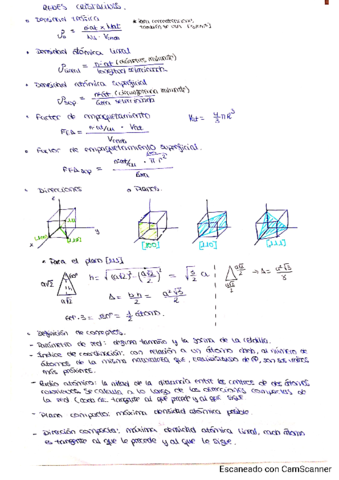 REDES CRISTALINAS.
Densidad teórica
ρ = n·at × Mat / Na · Vcelda
Densidad Atómica Lineal
ρlineal = n·at (diámetros, mínimante) / longitud seleccionada
Densidad atómica superficial
Área seleccionada
Factor de empaquetamiento
Vat = 4/3 π R³
FEA = n·at/cu · Vat / Vcelda
Factor de empaquetamiento superficial
FEAsup = nºat/cu · π r² / Área
Direcciones
Planos.
x
y
z
[100]
[110]
[111]
Para el plano [111]
h = √(a√2)² - (a√2/2)² = √(3/2) a
a√2
60°
A = b·h/2 = a²√3/2
60° = 1/2 átomo.
Definición de conceptos.
- Parámetro de red: define tamaño y la forma de la celdilla.
- Índice de coordinación, con relación a un átomo dado, al número de átomos de la misma naturaleza que, equidistantes de él, son los vecinos más próximos.
- Radio atómico: la mitad de la distancia entre los centros de dos átomos
se calcula a lo largo de las direcciones compactas de
la red (cada at. tangente al que precede y al que sigue
- Plano compacto: máxima densidad atómica posible.
- Dirección compacta: máxima densidad atómica lineal, cada átomo
es tangente al que le precede y al que lo sigue.
Escaneado con CamScanner